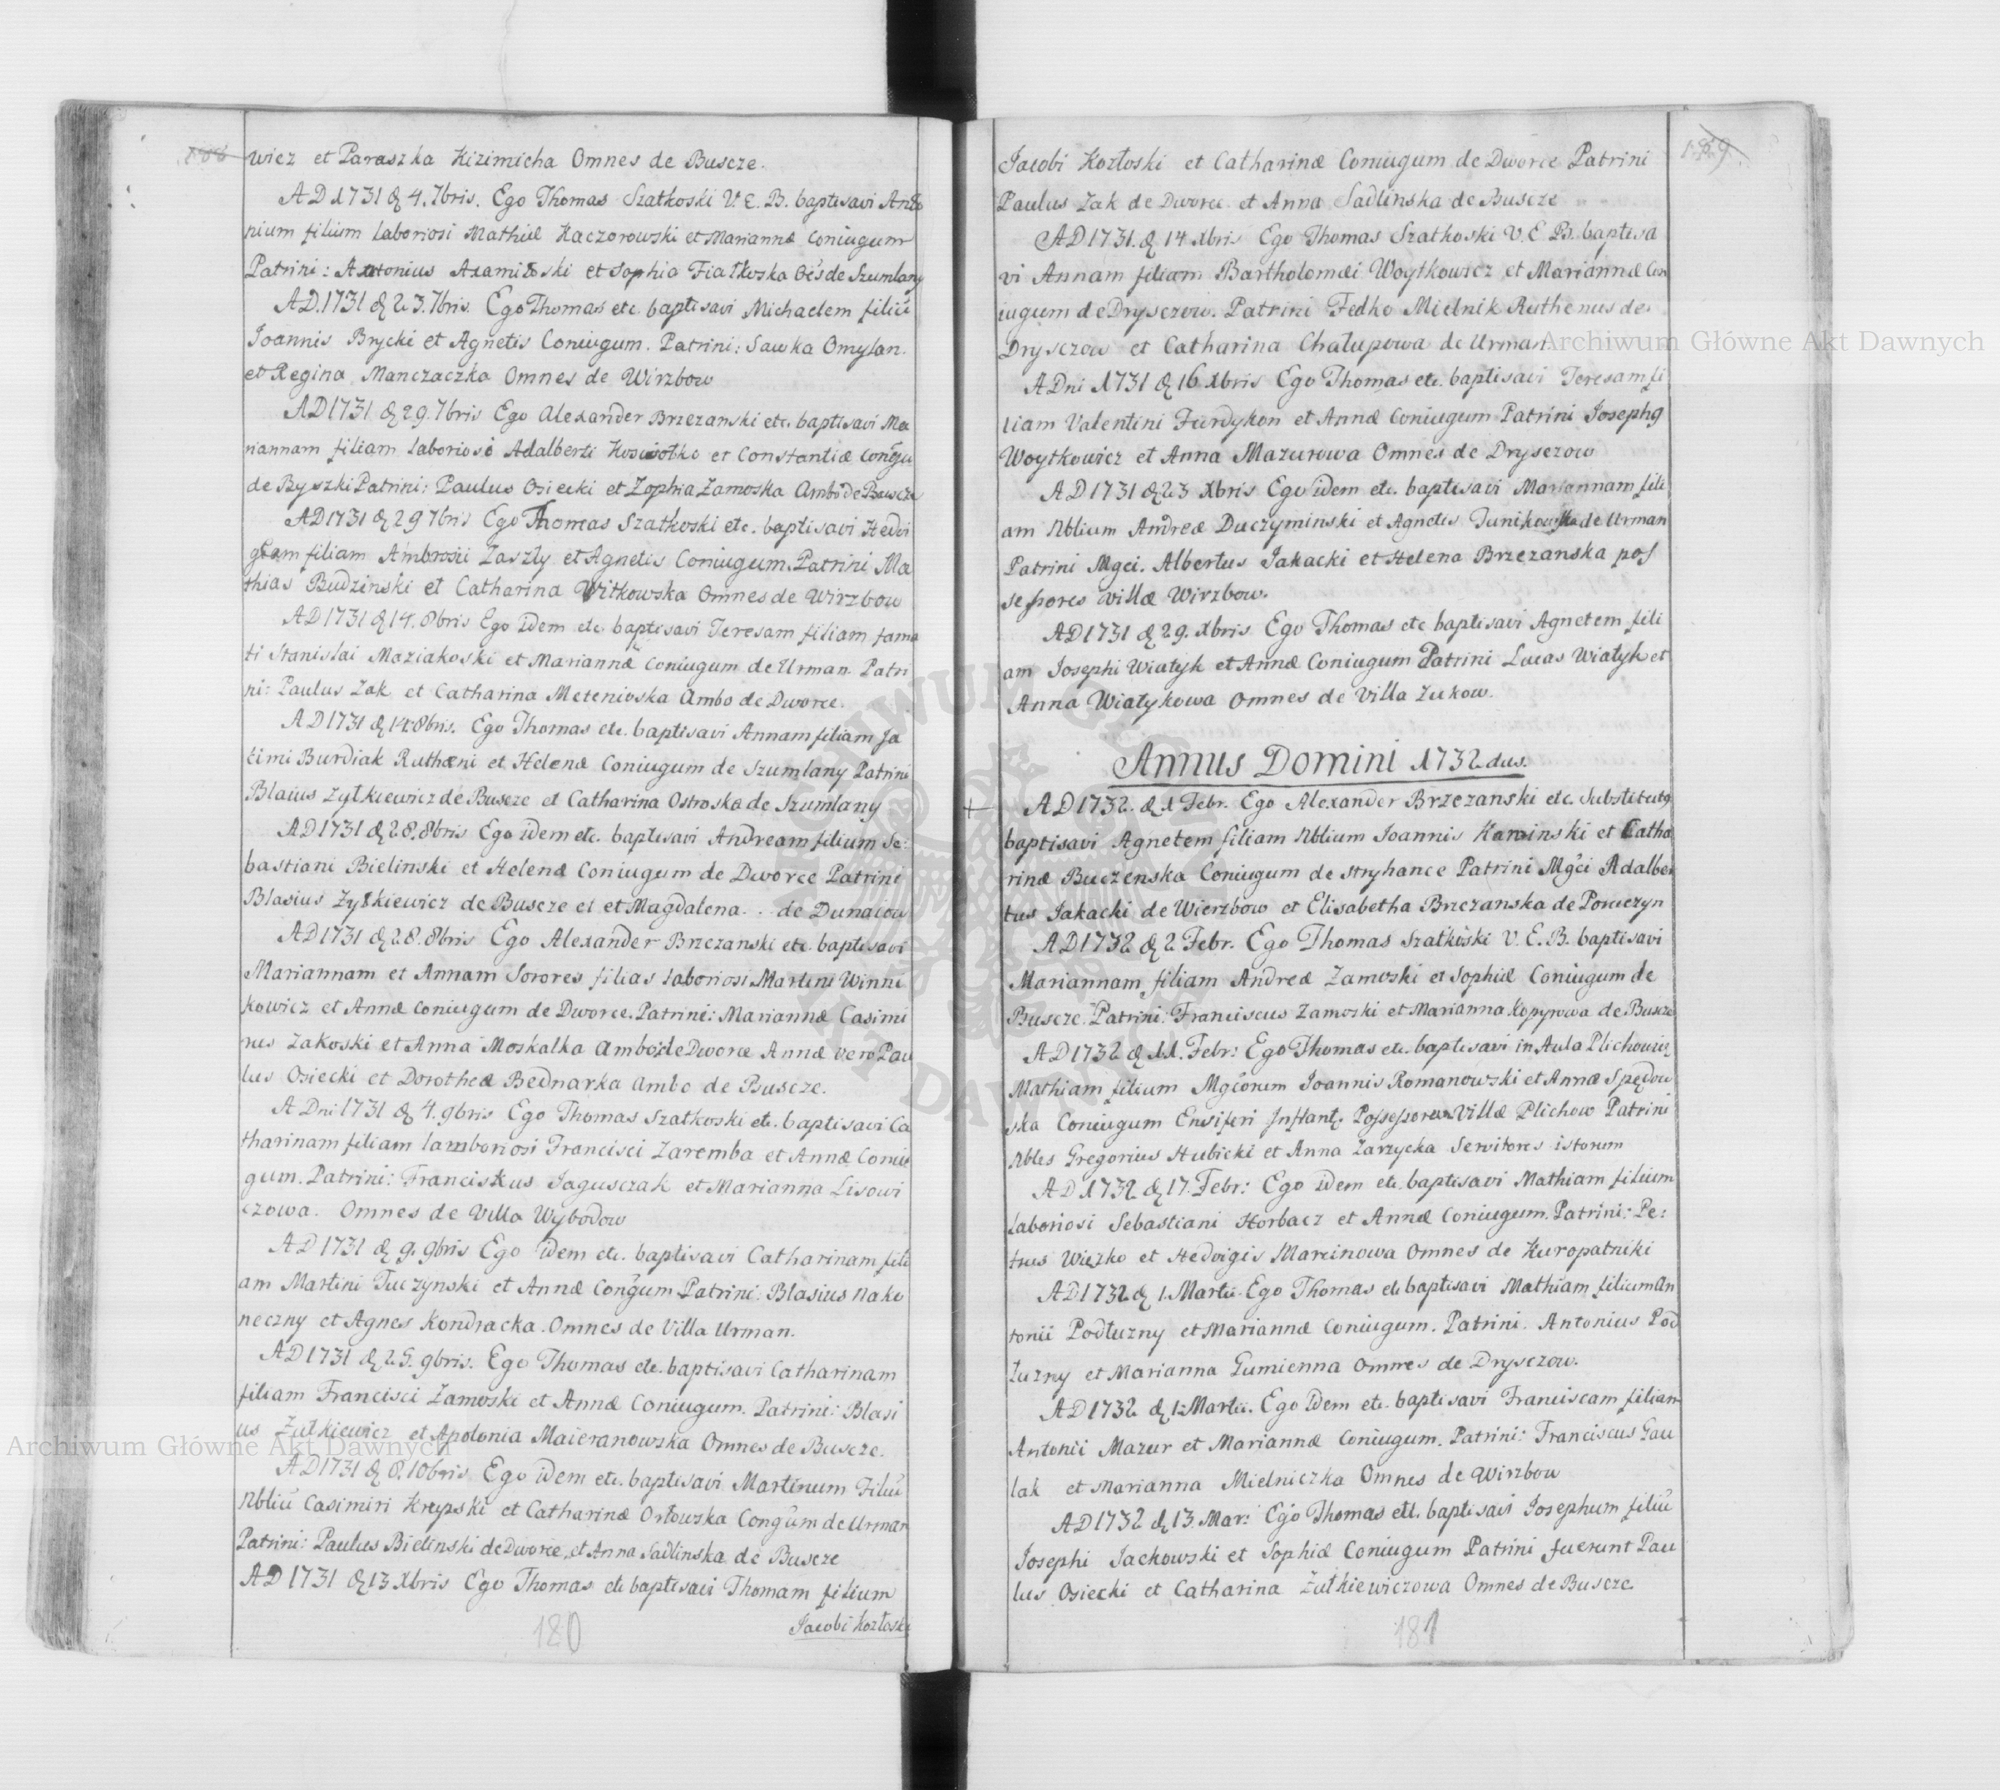 188
wicz et Paraszka Kizimicha Omnes de Buscze.
AD 1731 d 4. 7bris. Ego Thomas Szatkoski V. E. B. baptisavi Anto
nium filium laboriosi Mathiæ Kaczorowski et Mariannæ Coniugum
Patrini: Antonius Adamioski et Sophia Fiałkoska Oēs de Szumlany
AD. 1731 d 23. 7bris. Ego Thomas etc. baptisavi Michaelem filiū
Joannis Brycki et Agnetis Coniugum. Patrini: Sawka Omylan.
et Regina Manczaczka Omnes de Wirzbow
AD 1731 d 29. 7bris Ego Alexander Brzezanski etc. baptisavi Ma
riannam filiam laboriosi Adalberti Kosciołko et Constantiæ Congu
de Byszki Patrini: Paulus Osiecki et Zophia Zamoska Ambo de Buscze
AD 1731 d 29 7bris Ego Thomas Szatkoski etc. baptisavi Hedvi
gam filiam Ambrosii Zaszły et Agnetis Coniugum. Patrini Ma
thias Budzinski et Catharina Witkowska Omnes de Wirzbow
AD 1731 d 14. 8bris Ego idem etc. baptisavi Teresam filiam fama
ti Stanislai Maziakoski et Mariannæ Coniugum de Urman. Patri
ni: Paulus Zak et Catharina Metenioska Ambo de Dworce.
AD 1731 d 14. 8bris. Ego Thomas etc. baptisavi Annam filiam Ja
cimi Burdiak Rutheni et Helenæ Coniugum de Szumlany Patrini
Blasius Zyłkiewicz de Buscze et Catharina Ostroska de Szumlany
AD 1731 d 28. 8bris Ego idem etc. baptisavi Andream filium Se:
bastiani Bielinski et Helenæ Coniugum de Dworce Patrini
Blasius Zyłkiewicz de Buscze et et Magdalena . . de Dunaiow
AD 1731 d 28. 8bris Ego Alexander Brzezanski etc. baptisavi
Mariannam et Annam Sorores filias laboriosi Martini Winni
kowicz et Annæ Coniugum de Dworce. Patrini: Mariannæ Casimi
rus Zakoski et Anna Moskalka Ambo de Dworce Annæ vero Pau
lus Osiecki et Dorotheæ Bednarka Ambo de Buscze.
A Dni 1731 d 4. 9bris Ego Thomas Szatkoski etc. baptisavi Ca
tharinam filiam lamboriosi Francisci Zaremba et Annæ Coniu
gum. Patrini: Franciskus Jagusczak et Marianna Lisowi
czowa. Omnes de Villa Wybodow
AD 1731 d 9. 9bris Ego idem etc. baptisavi Catharinam fili
am Martini Tuczynski et Annæ Congum Patrini: Blasius Nako
neczny et Agnes Kondracka. Omnes de Villa Urman.
AD 1731 d 25. 9bris. Ego Thomas etc. baptisavi Catharinam
filiam Francisci Zamoski et Annæ Coniugum. Patrini: Blasi
us Zulkiewicz et Apolonia Maieranowska Omnes de Buscze.
AD 1731 d 8. 10bris Ego idem etc. baptisavi Martinum Filiū
Nbliū Casimiri Krepski et Catharinæ Orłowska Congūm de Urman
Patrini: Paulus Bielinski de Dworce, et Anna Sadlinska de Buscze
AD 1731 d 13 Xbris Ego Thomas etc baptisavi Thomam filium
Jacobi Kozłoski
180
189.
Jacobi Kozłoski et Catharinæ Coniugum de Dworce Patrini
Paulus Zak de Dworce et Anna Sadlinska de Buscze
AD 1731. d 14 Xbris Ego Thomas Szatkoski V. E B. baptisa
vi Annam filiam Bartholomæi Woytkowicz et Mariannæ Con
iugum de Drysczow. Patrini Fedko Mielnik Ruthenus de
Drysczow et Catharina Chalupowa de Urman
A Dni 1731 d 16 Xbris Ego Thomas etc. baptisavi Teresam fi
liam Valentini Furdykon et Annæ Coniugum Patrini Josephg
Woytkowicz et Anna Mazurowa Omnes de Drysczow
AD 1731 d 23 Xbris Ego idem etc. baptisavi Mariannam fili
am Nblium Andreæ Duczyminski et Agnetis Junikowska de Urman
Patrini Mgci. Albertus Jakacki et Helena Brzezanska pos
sessores villæ Wirzbow.
AD 1731 d 29. Xbris Ego Thomas etc baptisavi Agnetem fili
am Josephi Wiatyk et Annæ Coniugum Patrini Lucas Wiatyk et
Anna Wiatykowa Omnes de Villa Zukow.
Annus Domini 1732 dus.
AD 1732. d 1 Febr. Ego Alexander Brzezanski etc. Substitutg
baptisavi Agnetem filiam Nblium Joannis Kaminski et Catha
rinæ Buczenska Coniugum de Stryhance Patrini Mgci Adalber
tus Jakacki de Wierzbow et Elisabetha Brzezanska de Poruczyn
AD 1732 d 2 Febr. Ego Thomas Szatkoski V. E. B. baptisavi
Mariannam filiam Andreæ Zamoski et Sophiæ Coniugum de
Buscze. Patrini: Franciscus Zamoski et Marianna Kopyowa de Buscze
AD 1732 d 11. Febr: Ego Thomas etc. baptisavi in Aula Plichowie
Mathiam filium Mgcorum Joannis Romanowski et Annæ Spędow
ska Coniugum Ensiferi Inflant. Possessorum Villæ Plichow Patrini
Nbles Gregorius Hubicki et Anna Zarzycka Servitores istorum
AD 1732 d 17. Febr: Ego idem etc. baptisavi Mathiam filium
laboriosi Sebastiani Horbacz et Annæ Coniugum. Patrini: Pe:
trus Wiezko et Hedvigis Marcinowa Omnes de Kuropatniki
AD 1732 d 1. Martii. Ego Thomas etc baptisavi Mathiam filium An
tonii Podłuzny et Mariannæ Coniugum. Patrini. Antonius Pod
łuzny et Marianna Gumienna Omnes de Drysczow.
AD 1732 d 1. Martii. Ego idem etc. baptisavi Franciscam filiam
Antonii Mazur et Mariannæ Coniugum. Patrini: Franciscus Gau
lak et Marianna Mielniczka Omnes de Wirzbow
AD 1732 d 13. Mar: Ego Thomas etc. baptisavi Josephum filiū
Josephi Jackowski et Sophiæ Coniugum Patrini fuerunt Pau
lus Osiecki et Catharina Zułkiewiczowa Omnes de Buscze.
181
Archiwum Główne Akt Dawnych
Archiwum Główne Akt Dawnych